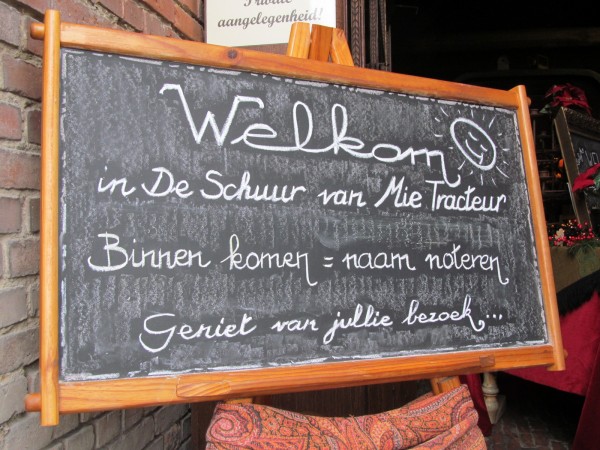 Private
aangelegenheid!
Welkom
in De Schuur van Mie Tracteur
Binnen komen = naam noteren
Geniet van jullie bezoek...